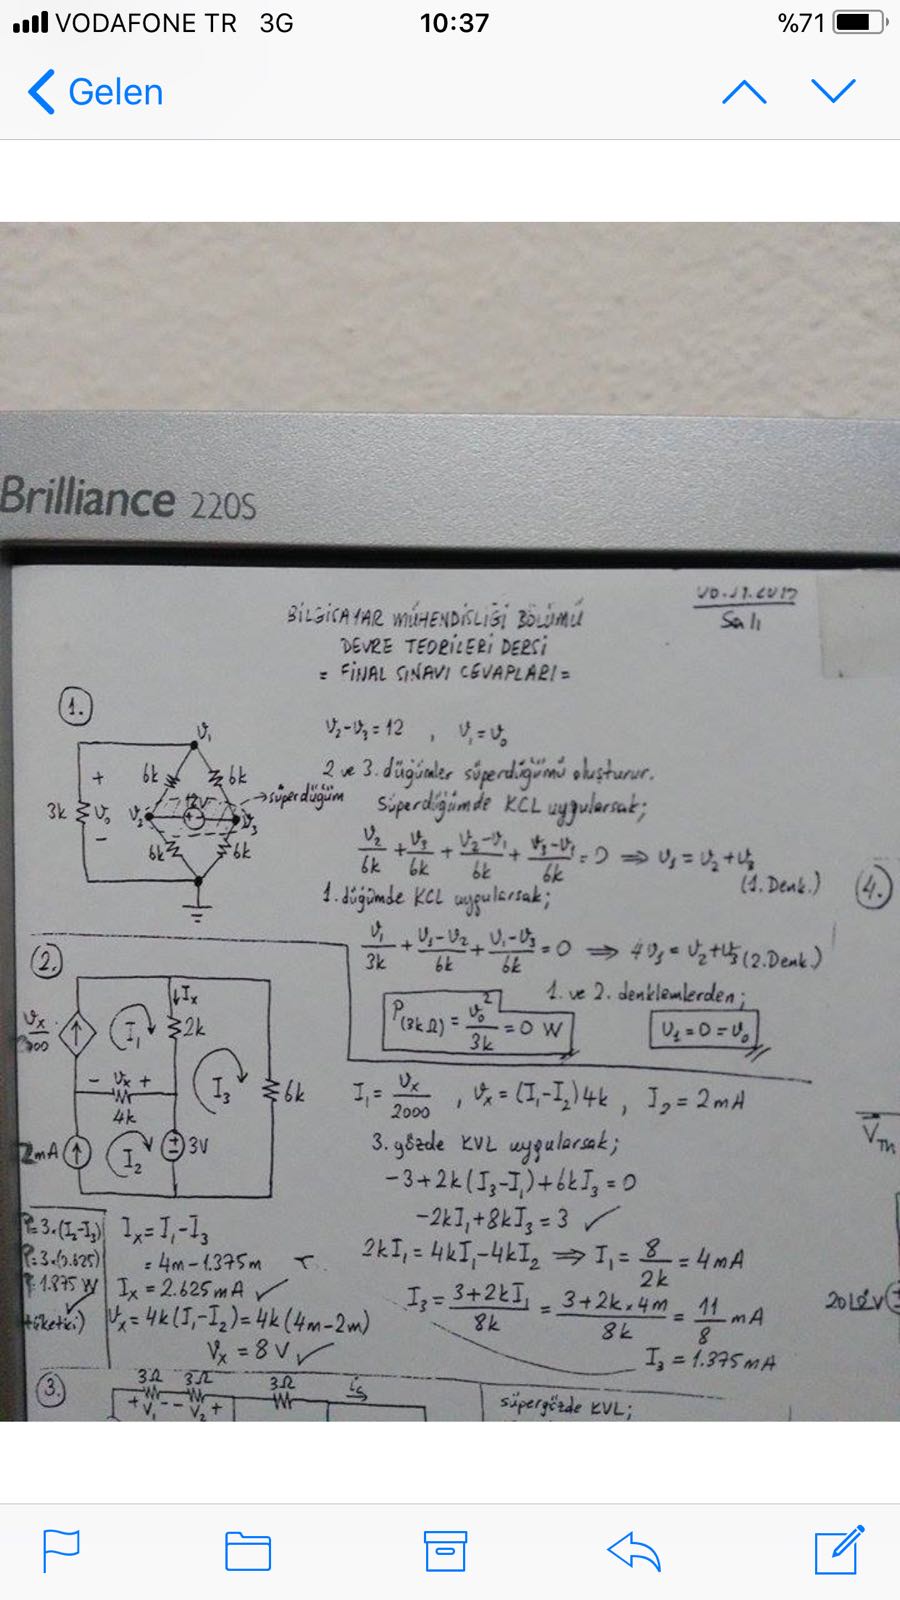 VODAFONE TR 3G 10:37 %71
Gelen
Brilliance 220S
Salı
BİLGİSAYAR MÜHENDİSLİĞİ BÖLÜMÜ
DEVRE TEORİLERİ DERSİ
= FİNAL SINAVI CEVAPLARI =
1.
V₁
6k 6k
+
3k V₀
-
V₂ 12V V₃
→süperdüğüm
6k 6k
V₂-V₃=12 , V₁=V₀
2 ve 3. düğümler süperdüğümü oluşturur.
Süperdüğümde KCL uygularsak;
V₂/6k + V₃/6k + (V₂-V₁)/6k + (V₃-V₁)/6k = 0 ⇒ V₁ = V₂+V₃
(1. Denk.)
1. düğümde KCL uygularsak;
V₁/3k + (V₁-V₂)/6k + (V₁-V₃)/6k = 0 ⇒ 4V₁ = V₂+V₃ (2. Denk.)
1. ve 2. denklemlerden;
P(3kΩ) = V₀²/3k = 0 W
V₁=0=V₀
2.
↓Ix
I₁ 2k
- Vx +
4k
I₃ 6k
2mA I₂ 3V
I₁ = Vx/2000 , Vx = (I₁-I₂)4k , I₂ = 2mA
3. gözde KVL uygularsak;
-3+2k(I₃-I₁)+6kI₃=0
-2kI₁+8kI₃=3 ✓
2kI₁=4kI₁-4kI₂ ⇒ I₁ = 8/2k = 4mA
I₃ = (3+2kI₁)/8k = (3+2k×4m)/8k = 11/8 mA
I₃ = 1.375mA
P=3.(I₂-I₃)
1.875 W
Ix = I₁-I₃
= 4m-1.375m
Ix = 2.625mA ✓
Vx = 4k(I₁-I₂)=4k(4m-2m)
Vx = 8V ✓
3.
3Ω 3Ω 3Ω
+ V₁ - - V₂ +
süpergözde KVL;
4.